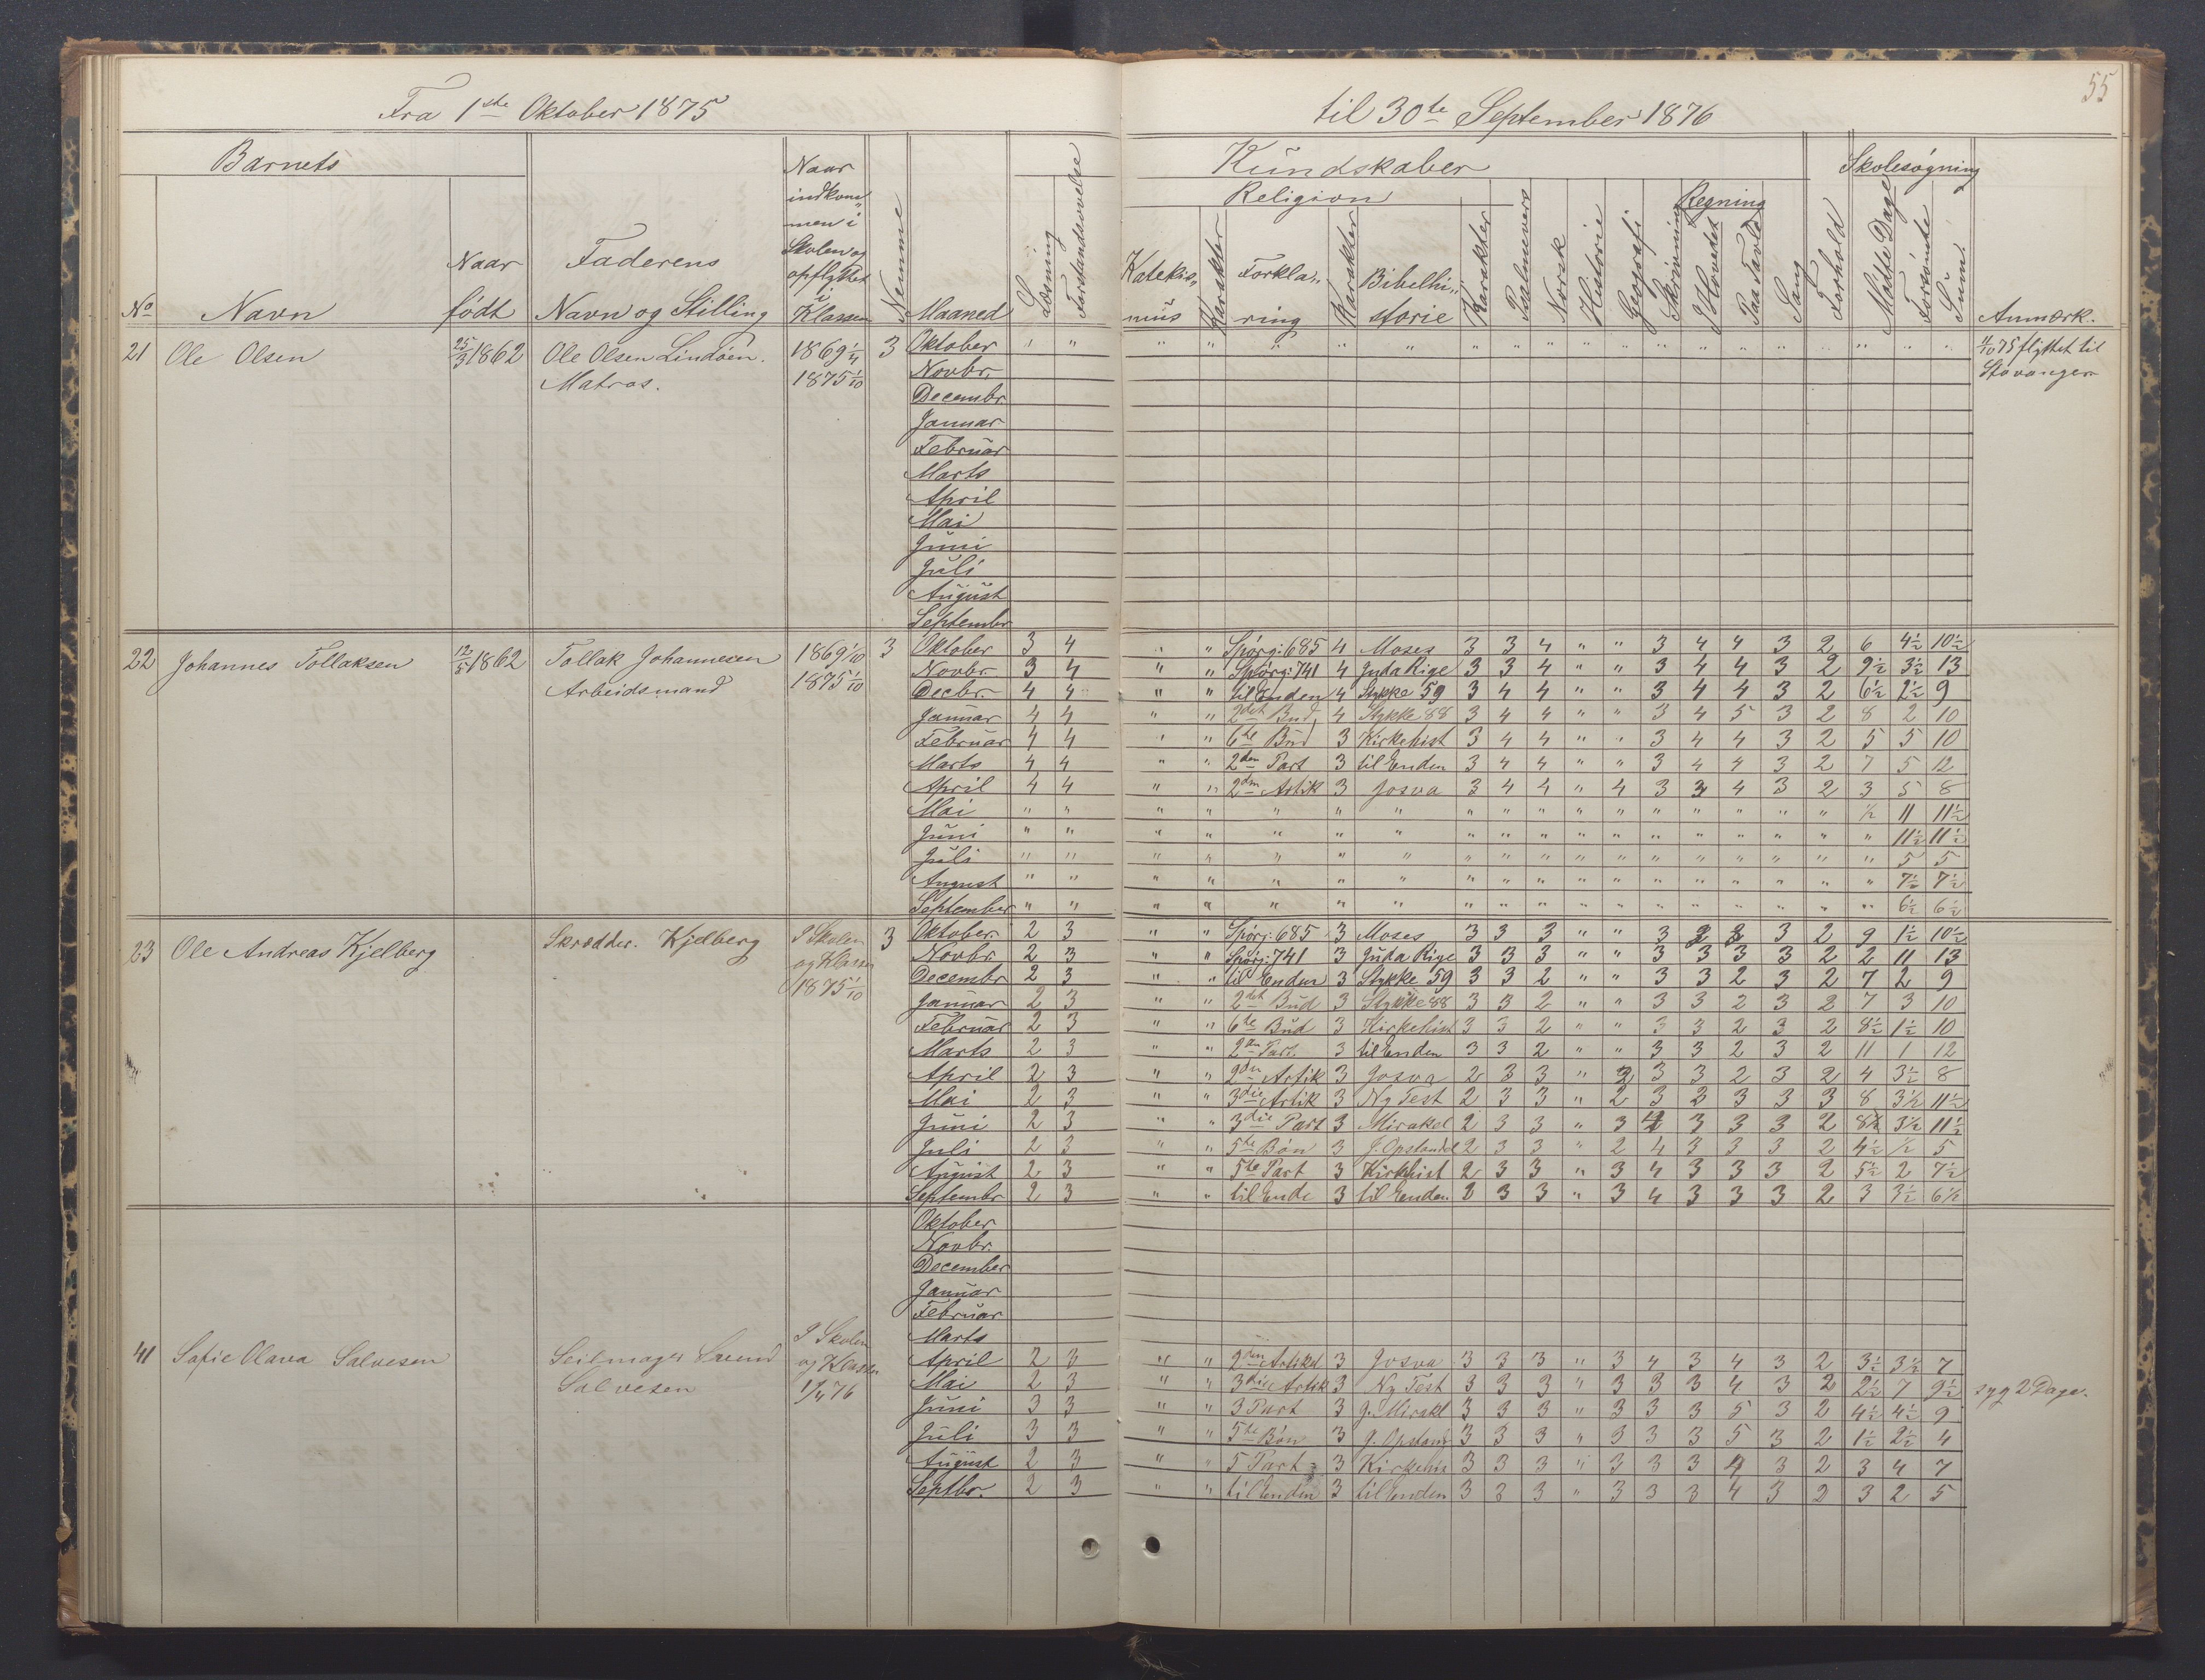 55
Fra 1ste Oktober 1875 til 30te September 1876
Barnets Kundskaber Skolesøgning
Religion Regning
No Navn Naar født Faderens Navn og Stilling Naar indkommen i Skolen og opflyttet i Klassen Nemme Maaned Læsning Forstandsøvelse Katekismus Karakter Forklaring Karakter Bibelhistorie Karakter Psalmevers Norsk Historie Geografi Skrivning I Hovedet Paa Tavle Sang Forhold Mødte Dage Forsømte Sum Anmærk.
21 Ole Olsen 25/3 1862 Ole Olsen Lindøen. 1869 1/4 3 Oktober " " " " " " " " " " " " " " " " " " " " 4/10 75 flyttet til
Matros. 1875 1/10 Novbr. Stavanger
Decembr.
Januar
Februar
Marts
April
Mai
Juni
Juli
August
Septembr
22 Johannes Tollaksen 12/5 1862 Tollak Johannesen 1869 1/10 3 Oktober 3 4 " " Spørg: 685 4 Moses 3 3 4 " " 3 4 4 3 2 6 4½ 10½
Arbeidsmand 1875 1/10 Novbr. 3 4 " " Spørg: 741 4 Juda Rige 3 3 4 " " 3 4 4 3 2 9½ 3½ 13
Decbr. 4 4 " " til Enden 4 Stykke 59 3 4 4 " " 3 4 4 3 2 6½ 2½ 9
Januar 4 4 " " 2det Bud 4 Stykke 88 3 4 4 " " 3 4 5 3 2 8 2 10
Februar 4 4 " " 6te Bud 3 Kirkehist 3 4 4 " " 3 4 4 3 2 5 5 10
Marts 4 4 " " 2den Part 3 til Enden 3 4 4 " " 3 4 4 3 2 7 5 12
April 4 4 " " 2den Artik 3 Josva 3 4 4 " 4 3 3 4 3 2 3 5 8
Mai " " " " " " " " " " " " " " " " " ½ 11 11½
Juni " " " " " " " " " " " " " " " " " " 11½ 11½
Juli " " " " " " " " " " " " " " " " " " 5 5
August " " " " " " " " " " " " " " " " " " 7½ 7½
September " " " " " " " " " " " " " " " " " " 6½ 6½
23 Ole Andreas Kjelberg Skrædder. Kjelberg I Skolen 3 Oktober. 2 3 " " Spørg: 685 3 Moses 3 3 3 " " 3 3 3 3 2 9 1½ 10½
og Klassen Novbr 2 3 " " Spørg: 741 3 Juda Rige 3 3 3 " " 3 3 3 3 2 2 11 13
1875 1/10 Decembr 2 3 " " til Enden 3 Stykke 59 3 3 2 " " 3 3 2 3 2 7 2 9
Januar 2 3 " " 2det Bud 3 Stykke 88 3 3 2 " " 3 3 2 3 2 7 3 10
Februar 2 3 " " 6te Bud 3 Kirkehist 3 3 2 " " 3 3 2 3 2 8½ 1½ 10
Marts 2 3 " " 2den Part. 3 til Enden 3 3 2 " " 3 3 2 3 2 11 1 12
April 2 3 " " 2den Artik 3 Josva 2 3 3 " 2 3 3 2 3 2 4 3½ 8
Mai 2 3 " " 3die Artik 3 Ny Test 2 3 3 " 2 3 3 3 3 3 8 3½ 11½
Juni 2 3 " " 3die Part 3 Mirakel 2 3 3 " 3 4 3 3 3 2 8½ 3½ 11½
Juli 2 3 " " 5te Bøn 3 J. Opstand 2 3 3 " 2 4 3 3 3 2 4½ ½ 5
August 2 3 " " 5te Part 3 Kirkhist 2 3 3 " 3 4 3 3 3 2 5½ 2 7½
Septembr 2 3 " " til Ende 3 til Enden. 2 3 3 " 3 4 3 3 3 2 3 3½ 6½
Oktober
Novbr.
December
Januar
Februar
Marts
41 Sofie Olava Salvesen Seilmager Svend I Skolen April 2 3 " " 2den Artikel 3 Josva 3 3 3 " 3 4 3 4 3 2 3½ 3½ 7
Salvesen og Klassen Mai 2 3 " " 3die Artik 3 Ny Test 3 3 3 " 3 3 3 4 3 2 2½ 7 9½ syg 2 Dage.
1/4 76 Juni 3 3 " " 3 Part 3 J. Mirakl 3 3 3 " 3 3 3 5 3 2 4½ 4½ 9
Juli 3 3 " " 5te Bøn 3 J. Opstand 3 3 3 " 3 3 3 5 3 2 1½ 2½ 4
August 2 3 " " 5 Part 3 Kirkehis 3 3 3 " 3 3 3 4 3 2 3 4 7
Septbr. 2 3 " " til Enden 3 til Enden 3 3 3 " 3 3 3 4 3 2 3 2 5